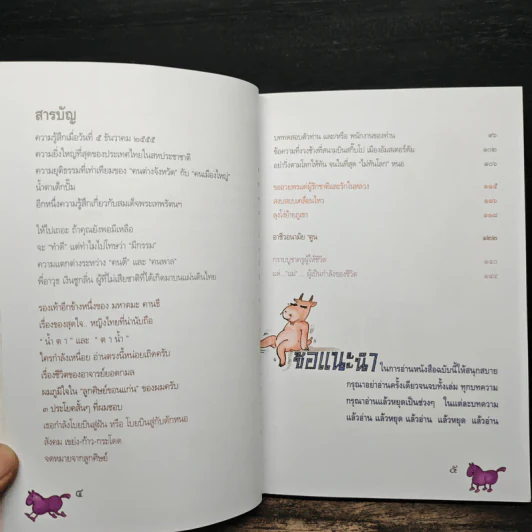 สารบัญ
ความรู้สึกเมื่อวันที่ ๕ ธันวาคม ๒๕๕๕
ความยิ่งใหญ่ที่สุดของประเทศไทยในสหประชาชาติ
ความยุติธรรมที่เท่าเทียมของ "คนต่างจังหวัด" กับ "คนเมืองใหญ่"
น้ำตาเด็กปั๊ม
อีกหนึ่งความรู้สึกเกี่ยวกับสมเด็จพระเทพรัตนฯ
ให้ไปเถอะ ถ้าคุณยังพอมีเหลือ
จะ "ทำดี" แต่ทำไมไปโทษว่า "มีกรรม"
ความแตกต่างระหว่าง "คนดี" และ "คนพาล"
พี่อาวุธ เงินชูกลิ่น ผู้ที่ไม่เสียชาติที่ได้เกิดมาบนแผ่นดินไทย
รองเท้าอีกข้างหนึ่งของ มหาตมะ คานธี
เรื่องของสุดใจ.. หญิงไทยที่น่านับถือ
" น้ำ ตา " และ " ตา น้ำ "
ใครกำลังเหนื่อย อ่านตรงนี้หน่อยเถิดครับ
เรื่องชีวิตของอาจารย์ยอดกมล
ผมภูมิใจใน "ลูกศิษย์ขอนแก่น" ของผมครับ
๓ ประโยคสั้นๆ ที่ผมชอบ
เธอกำลังโบยบินสู่ฝัน หรือ โบยบินสู่กับดักหนอ
สังคม เขย่ง-ก้าว-กระโดด
จดหมายจากลูกศิษย์
๔
บททดสอบตัวท่าน และ/หรือ พนักงานของท่าน ๙๖
ข้อความที่วงช้างที่สนามบินสคิ๊บโป เมืองอัมสเตอร์ดัม ๑๐๒
อย่าวิ่งตามโลกให้ทัน จนในที่สุด "ไม่ทันโลก" หนอ ๑๐๖
๑๑๕
สอบสอบเคลื่อนไหว ๑๑๖
ลุงโง่ย้ายภูเขา ๑๑๘
อาชีวอนามัย ๑๒๒
กราบบูชาครูผู้ให้ชีวิต ๑๘๐
แด่..."แม่"... ผู้เป็นกำลังของชีวิต ๑๘๔
ข้อแนะนำ ในการอ่านหนังสือฉบับนี้ให้สนุกสบาย
กรุณาอย่าอ่านครั้งเดียวจนจบทั้งเล่ม ทุกบทความ
กรุณาอ่านแล้วหยุดเป็นช่วงๆ ในแต่ละบทความ
แล้วอ่าน แล้วหยุด แล้วอ่าน แล้วหยุด แล้วอ่าน
๕